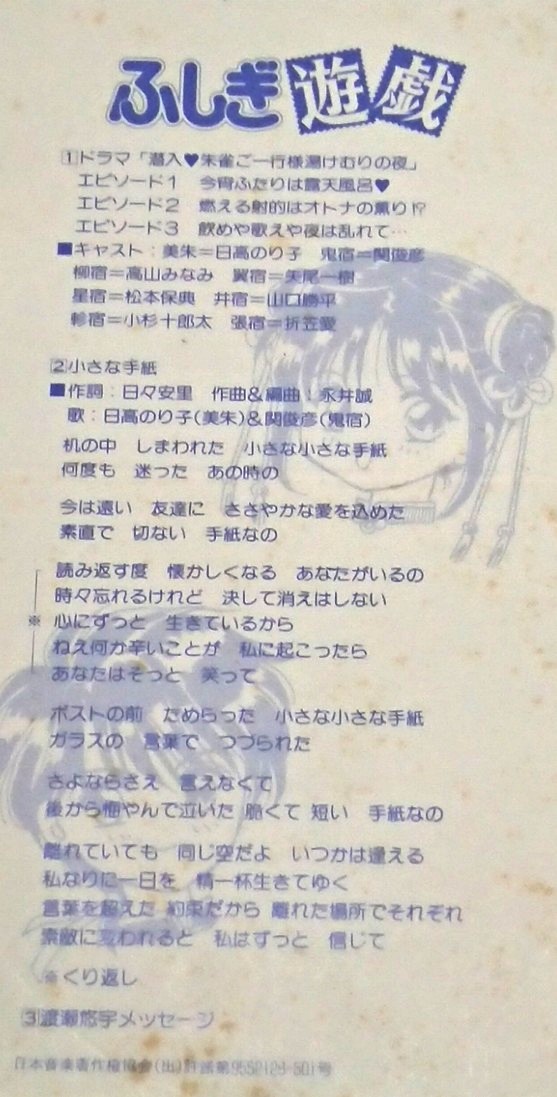 ふしぎ遊戯
1 ドラマ「潜入♥朱雀ご一行様湯けむりの夜」
エピソード1 今宵ふたりは露天風呂♥
エピソード2 燃える射的はオトナの薫り!?
エピソード3 飲めや歌えや夜は乱れて…
■キャスト：美朱＝日高のり子 鬼宿＝関俊彦
柳宿＝高山みなみ 翼宿＝矢尾一樹
星宿＝松本保典 井宿＝山口勝平
軫宿＝小杉十郎太 張宿＝折笠愛
2 小さな手紙
■作詞：日々安里 作曲&編曲：永井誠
歌：日高のり子(美朱)&関俊彦(鬼宿)
机の中 しまわれた 小さな小さな手紙
何度も 迷った あの時の
今は遠い 友達に ささやかな愛を込めた
素直で 切ない 手紙なの
読み返す度 懐かしくなる あなたがいるの
時々忘れるけれど 決して消えはしない
※ 心にずっと 生きているから
ねえ何か辛いことが 私に起こったら
あなたはそっと 笑って
ポストの前 ためらった 小さな小さな手紙
ガラスの 言葉で つづられた
さよならさえ 言えなくて
後から悔やんで泣いた 脆くて 短い 手紙なの
離れていても 同じ空だよ いつかは逢える
私なりに一日を 精一杯生きてゆく
言葉を超えた 約束だから 離れた場所でそれぞれ
素敵に変われると 私はずっと 信じて
※くり返し
3 渡瀬悠宇メッセージ
日本音楽著作権協会(出)許諾第9552126-501号